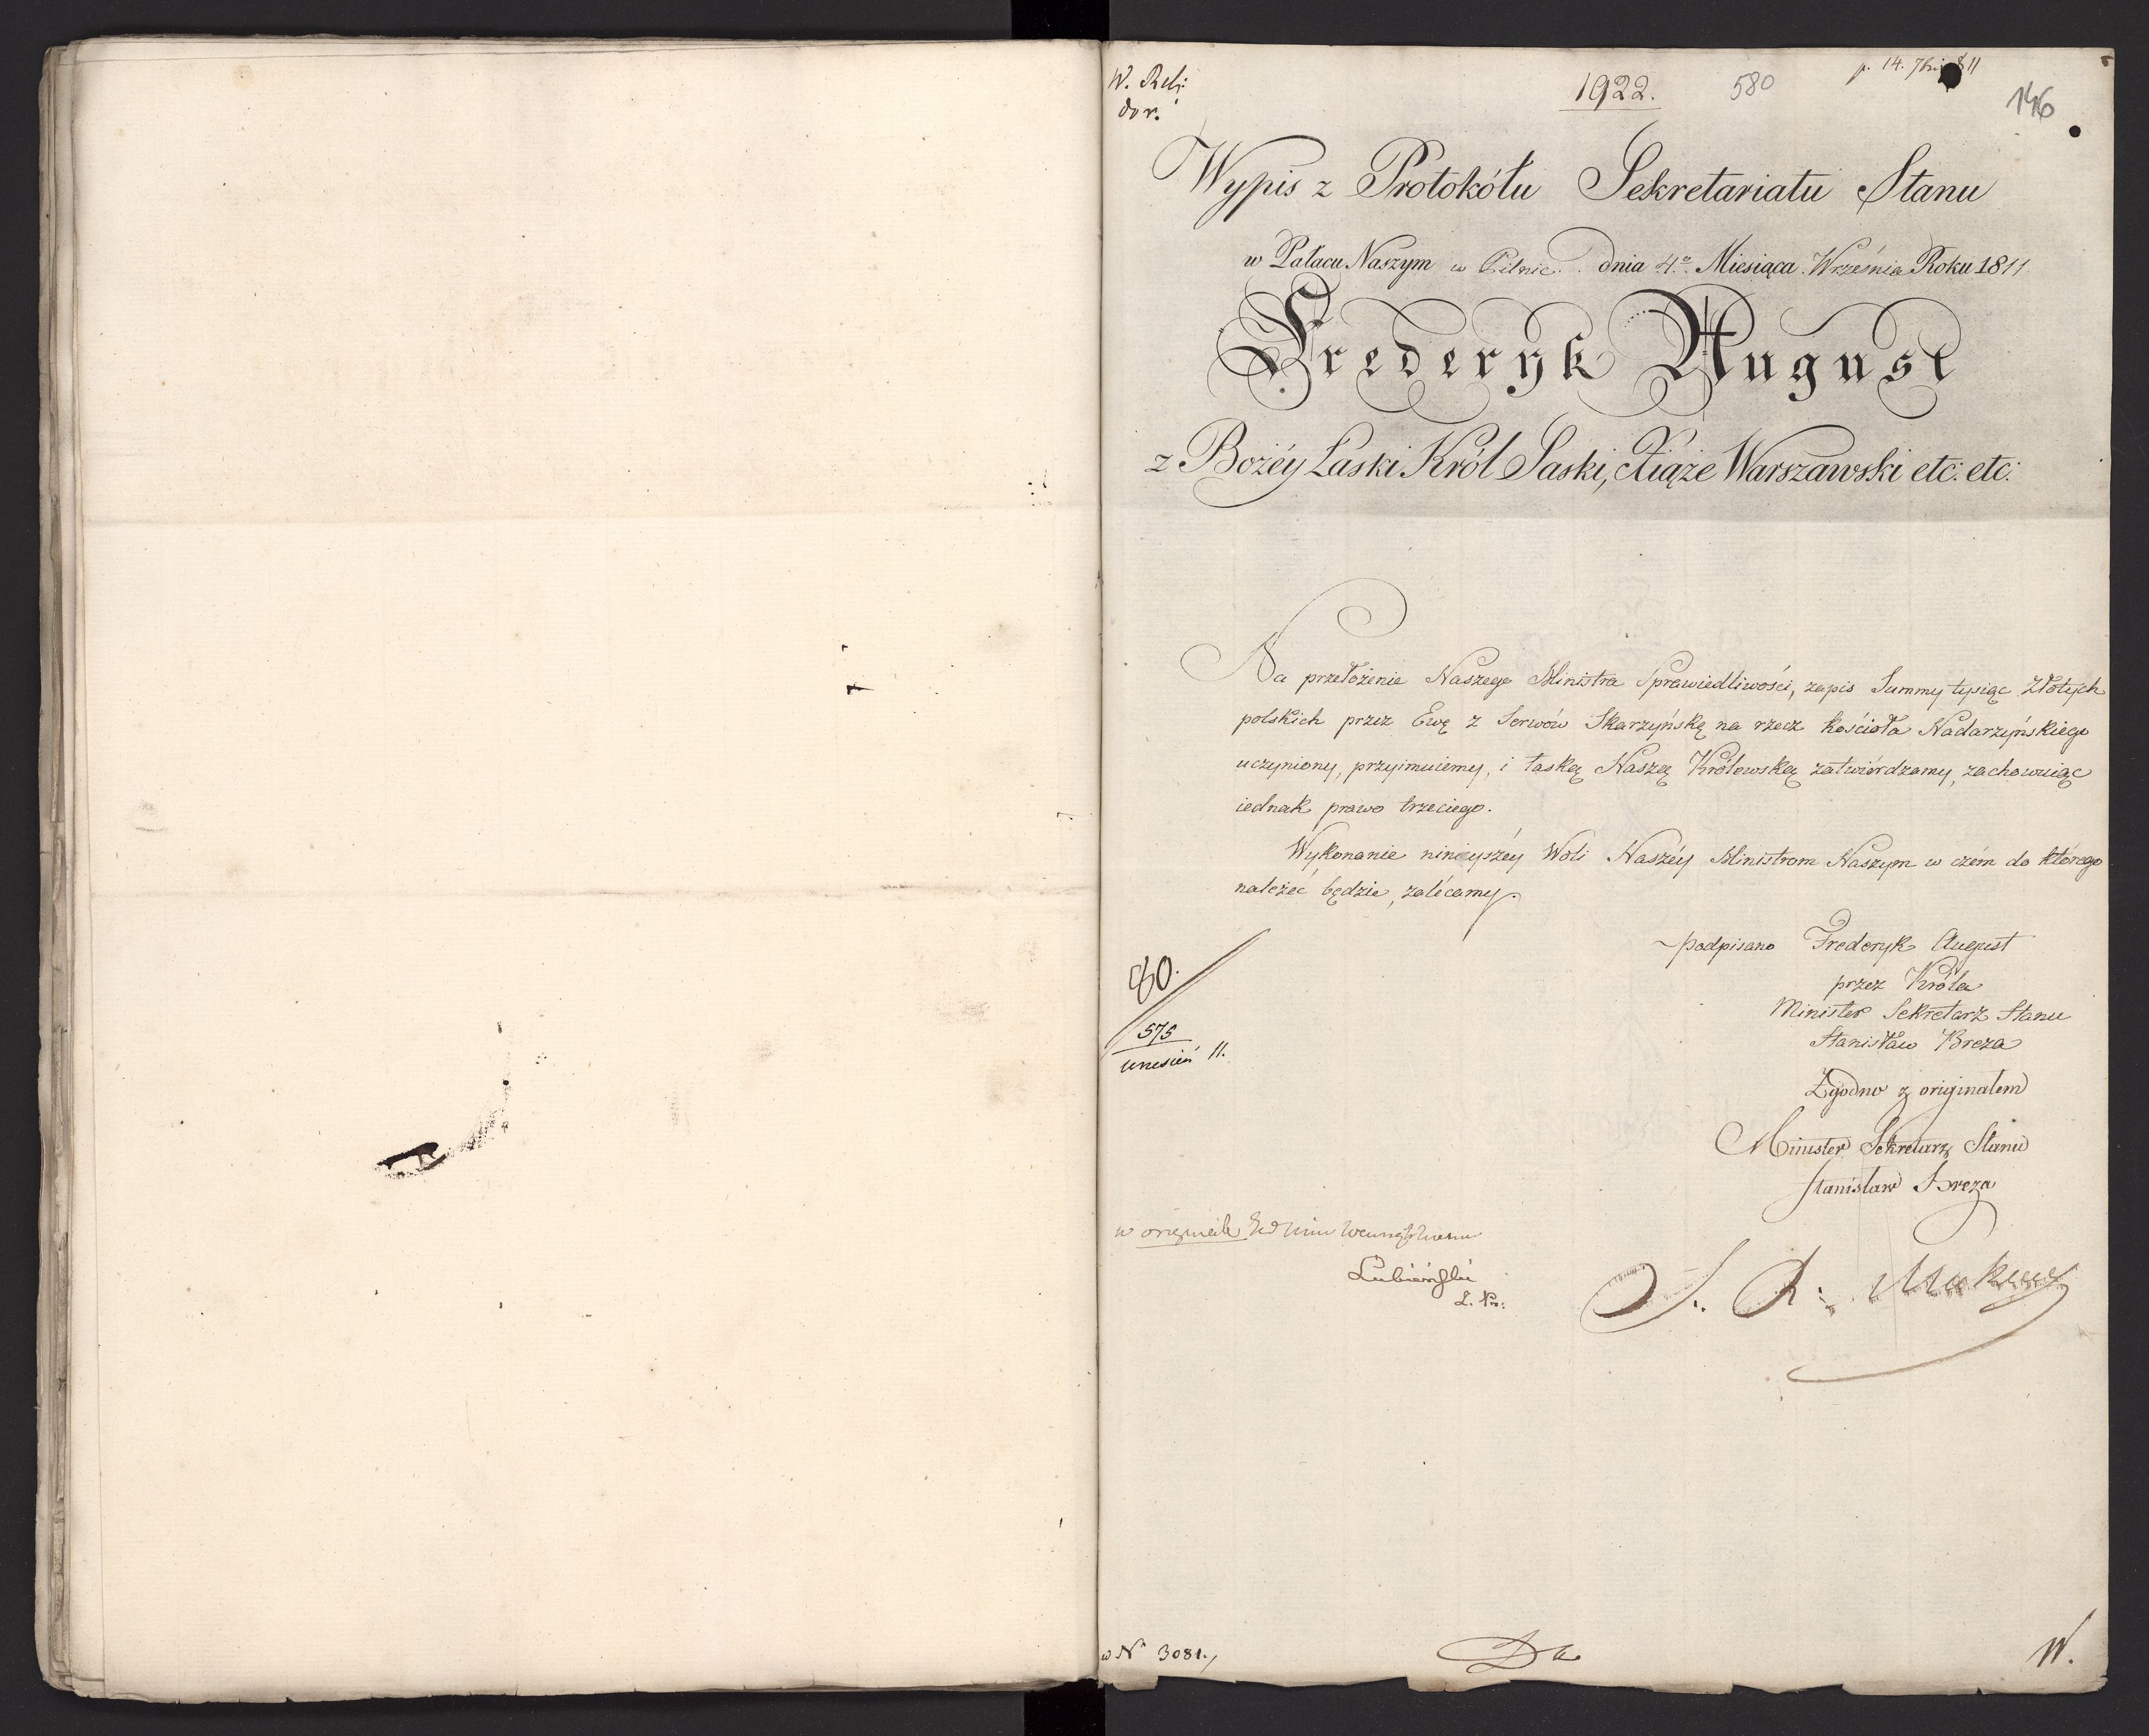 W. Reli:
dor.
1922.
580
p. 14. 7bris 811
146
Wypis z Protokółu Sekretariatu Stanu
w Pałacu Naszym w Pilnic. dnia 4º Miesiąca Września Roku 1811
Frederyk August
z Bożéy Łaski Król Saski, Xiąże Warszawski etc: etc:
Na przełożenie Naszego Ministra Sprawiedliwości, zapis Summy tysiąc Złotych
polskich przez Ewę z Serwów Skarzyńską na rzecz kościoła Nadarzyńskiego
uczyniony, przyimuiemy, i łaską Naszą Królewską zatwiérdzamy, zachowuiąc
iednak prawo trzeciego.
Wykonanie ninieyszéy Woli Naszéy Ministrom Naszym w czém do którego
należéć będzie, zalécamy.
podpisano Frederyk August
przez Króla
Minister Sekretarz Stanu
Stanisław Breza
80.
575
wrzesień 11.
Zgodno z originałem
Minister Sekretarz Stanu
Stanisław Breza
w originale
Lubieński
w Nº 3081.
W.